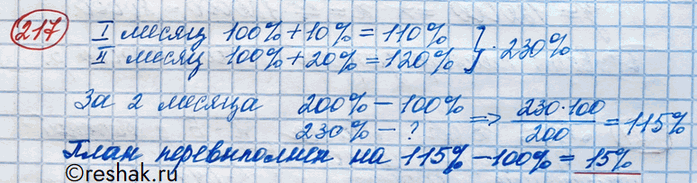 217 I месяц 100% + 10% = 110%
II месяц 100% + 20% = 120% } · 230%
За 2 месяца 200% – 100%
230% – ? ⇒ 230·100 / 200 = 115%
План перевыполнен на 115% – 100% = 15%
©reshak.ru